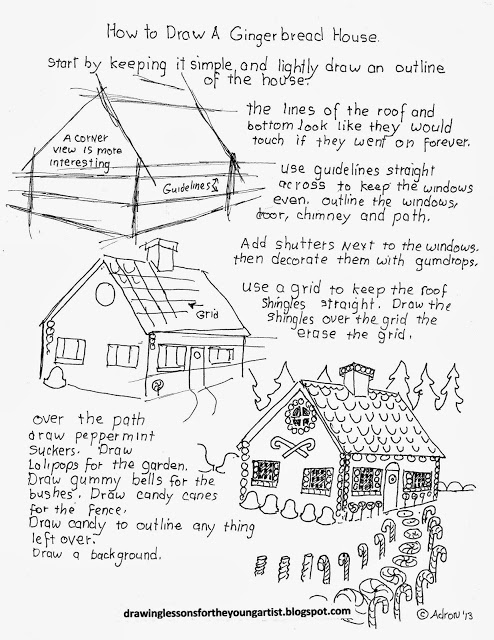 How to Draw A Gingerbread House.
Start by keeping it simple, and lightly draw an outline
of the house.
A corner
view is more
interesting
Guidelines
the lines of the roof and
bottom look like they would
touch if they went on forever.
use guidelines straight
across to keep the windows
even. outline the windows,
door, chimney and path.
Add shutters next to the windows.
then decorate them with gumdrops.
use a grid to keep the roof
shingles straight. Draw the
shingles over the grid the
erase the grid.
Grid
over the path
draw peppermint
suckers. Draw
Lolipops for the garden.
Draw gummy bells for the
bushes. Draw candy canes
for the fence.
Draw candy to outline any thing
left over.
Draw a background.
drawinglessonsfortheyoungartist.blogspot.com
© Adron '13